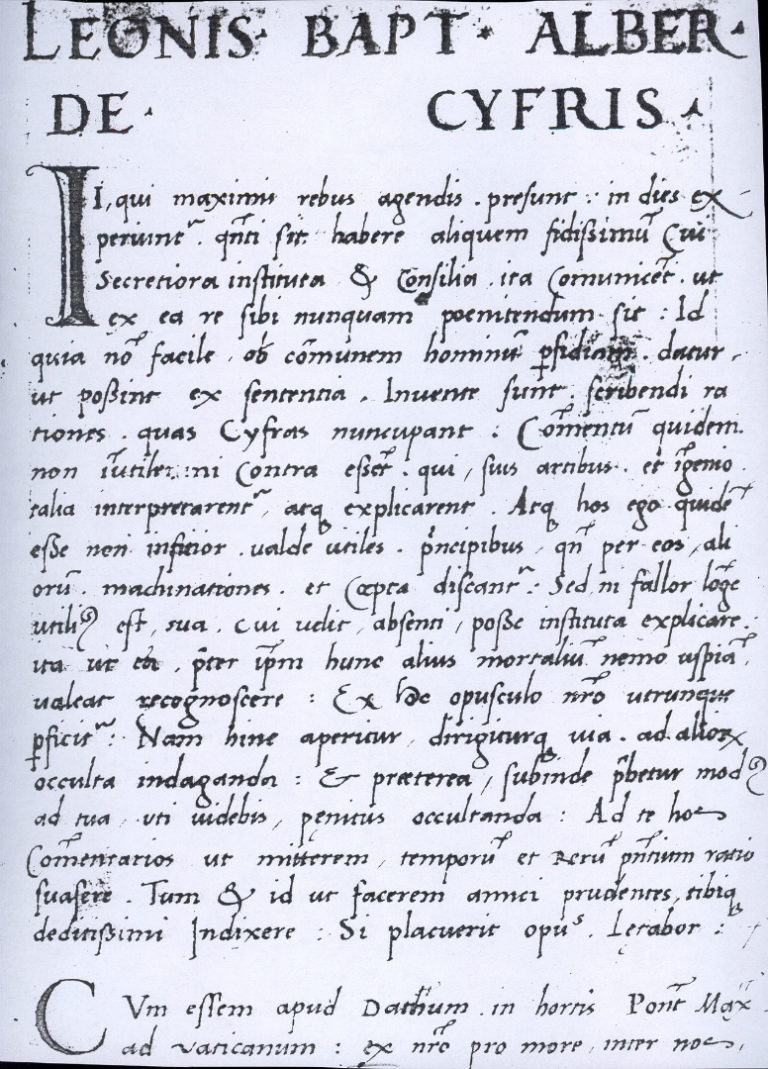 LEONIS· BAPT· ALBER·
DE· CYFRIS·
II, qui maximis rebus agendis . presunt : in dies ex
periunt᷑ . qn̄ti sit habere aliquem fidissimū Cui
Secretiora instituta & Consilia ita Comunicet . ut
ex ea re sibi nunquam poenitendum sit : Id
quia nō facile , ob cōmunem hominū ꝑfidiam . datur,
ut possint ex sententia . Invente sunt . scribendi ra
tiones . quas Cyfras nuncupant : Cōmentū quidem
non īutile: ni Contra essēt . qui , suis artibus . et īgenio
talia interpretarent᷑ , atq; explicarent . Atq; hos ego quidē
esse non infitior . valde utiles . pͥncipibus , qn̄ per eos , ali
orū . machinationes . et Cœpta discant᷑ : Sed ni fallor lōge
utiliꝰ est , sua . Cui velit , absenti , posse instituta explicare .
ita ut ea , p̄ter ip̄m hunc alius mortaliū nemo uspiā
valeat recognoscere : Ex hoc opusculo nr̄o utrunque
ꝑficit᷑ : Nam hinc aperitur , dirigiturq; via . ad alioꝝ
occulta indaganda : & præterea , subinde p̄betur modꝰ
ad tua , uti videbis , penitus occultanda : Ad te hos
Cōmentarios ut mitterem , temporū et Rerū pn̄tium ratio
suasere . Tum & id ut facerem amici prudentes , tibiq;
deditissimi Indixere : Si placuerit opuˢ . Letabor :
CVm essem apud Dathum . in hortis Pont̄ Max̄
ad vaticanum : ex nr̄o pro more , inter nos ,